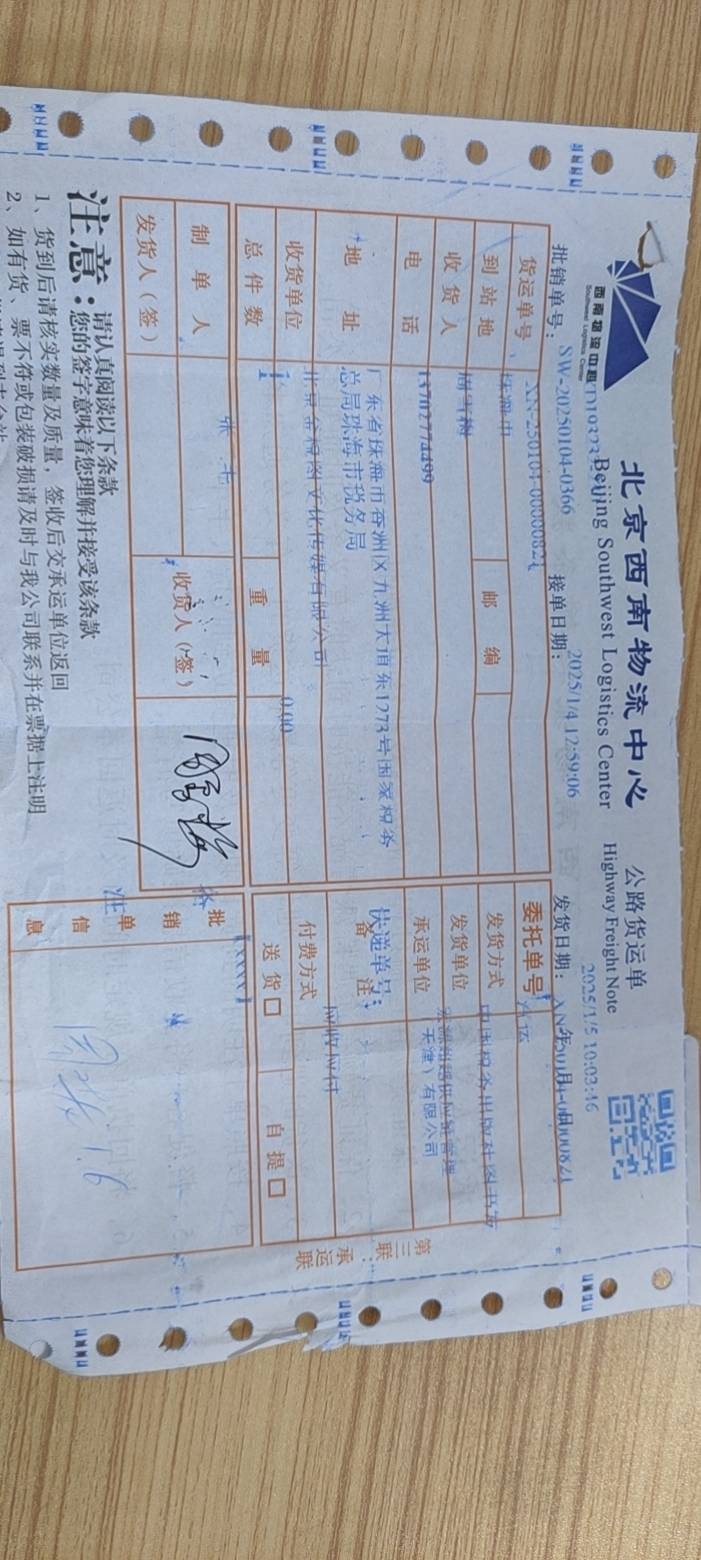 北京西南物流中心 公路货运单
Beijing Southwest Logistics Center Highway Freight Note
西南物流中心
Southwest Logistics Center
批销单号: SW-20250104-0366 接单日期: 2025/1/4 12:59:06 发货日期: 年 月 2025/1/5 10:03:46
货运单号 XN-250104-00000821 委托单号
到站地 珠海市 邮编 发货方式 汽运
收货人 发货单位 中国税务出版社图书发
电话 13702774499 承运单位 供应链管理
(天津)有限公司
地址 广东省珠海市香洲区九洲大道东1273号国家税务
总局珠海市税务局 备注 快递单号:
收货单位 文化传媒有限公司 付费方式 应收应付
总件数 1 重量 0.00 送货 □ 自提 □
制单人 张 收货人(签)
发货人(签)
批销单信息
第三联:承运联
注意: 请认真阅读以下条款
您的签字意味着您理解并接受该条款
1、货到后请核实数量及质量,签收后交承运单位返回
2、如有货、票不符或包装破损请及时与我公司联系并在票据上注明